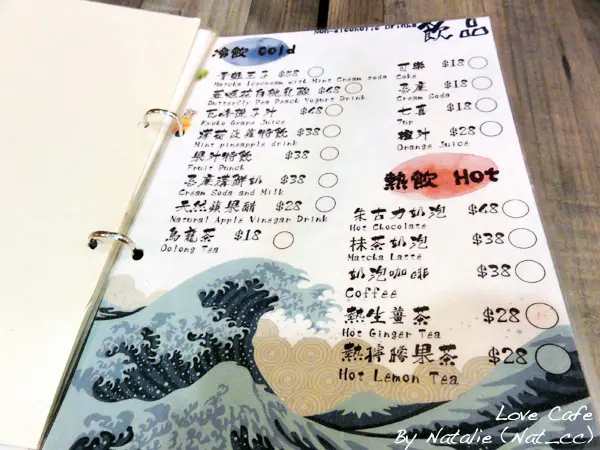 Non-alcoholic Drinks 飲品
冷飲 Cold
青雉王子 $58
Matcha Icecream with Mint Cream soda
$68
Butterfly Pea Peach Yogurt Drink
巨峰提子汁 $48
Kyoho Grape Juice
薄荷菠蘿特飲 $38
Mint pineapple drink
果汁特飲 $38
Fruit Punch
忌廉溝鮮奶 $38
Cream Soda and Milk
天然蘋果醋 $28
Natural Apple Vinegar Drink
烏龍茶 $18
Oolong Tea
可樂 $18
Coke
忌廉 $18
Cream Soda
七喜 $18
7up
橙汁 $28
Orange Juice
熱飲 Hot
朱古力奶泡 $48
Hot Chocolate
抹茶奶泡 $38
Matcha Latte
奶泡咖啡 $38
Coffee
熱生薑茶 $28
Hot Ginger Tea
熱檸檬果茶 $28
Hot Lemon Tea
Love Cafe
By Natalie (Nat_cc)